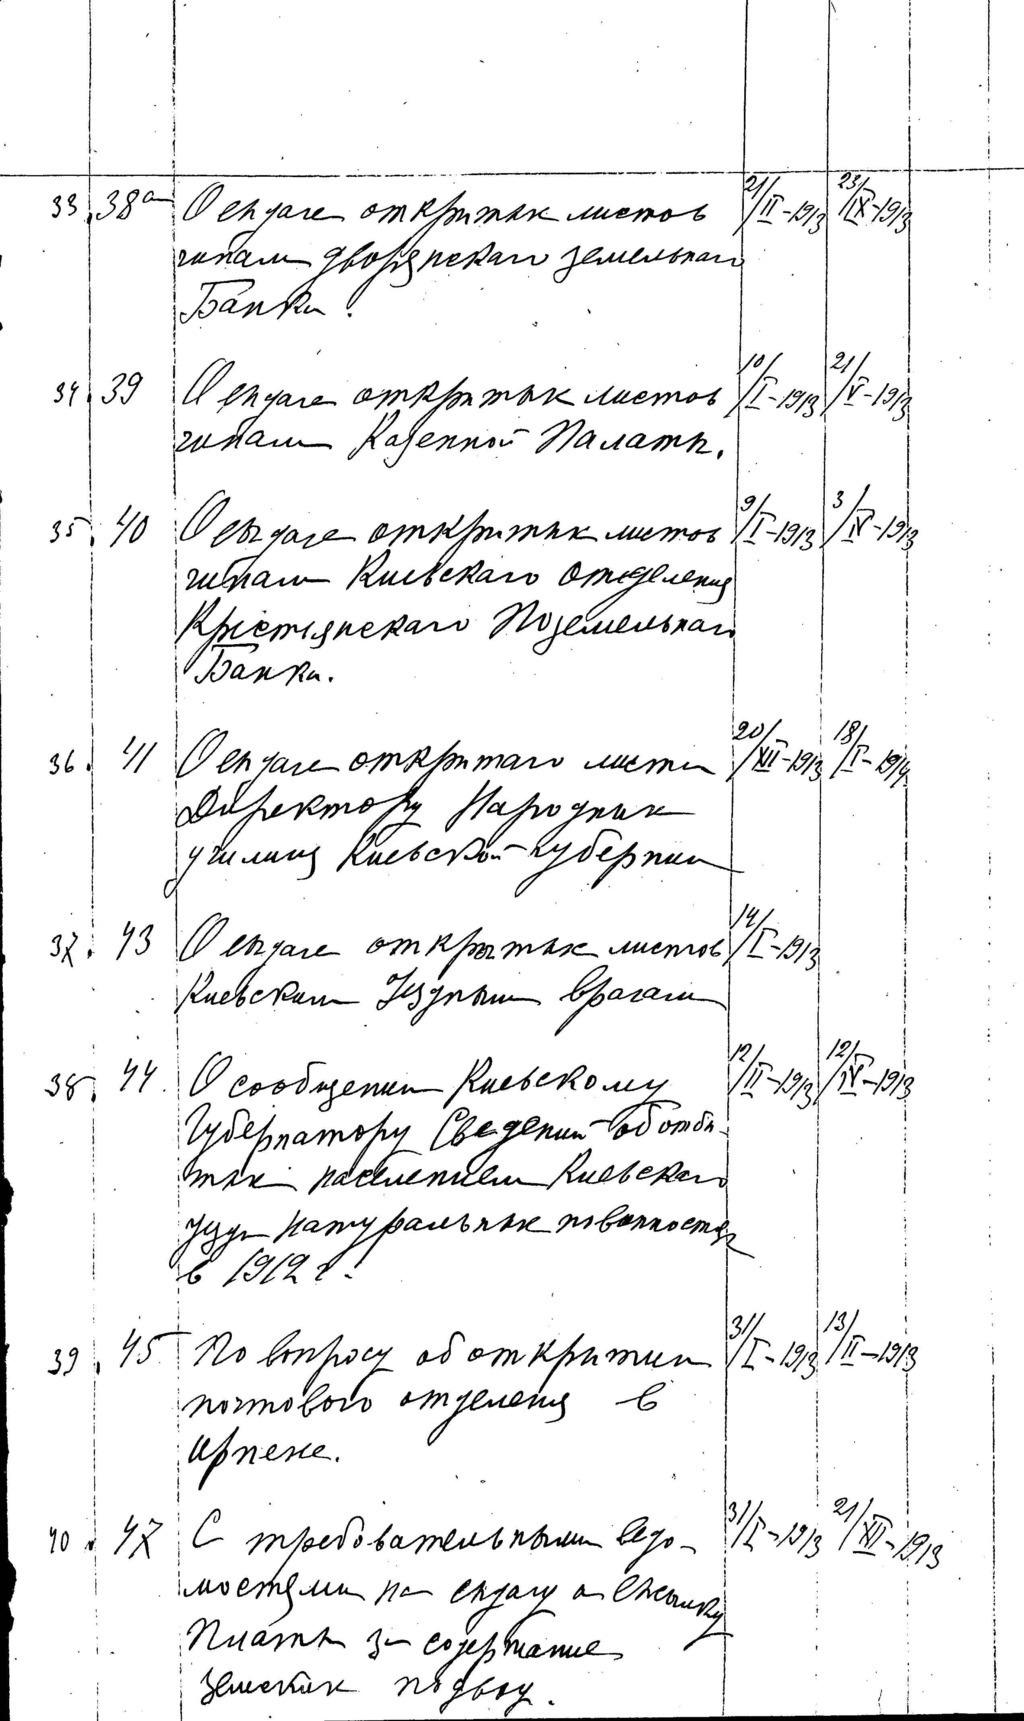 33. 38а О выдаче открытых листов 21/II-1913 23/IX-1913
чинам дворянскаго земельнаго
Банка.
34. 39 О выдаче открытых листов 10/I-1913 21/V-1913
чинам Казенной Палаты.
35. 40 О выдаче открытых листов 9/I-1913 3/IV-1913
чинам Киевскаго отделения
Крестьянскаго Поземельнаго
Банка.
36. 41 О выдаче открытаго листа 20/XII-1913 18/I-1914
Директору Народных
училищ Киевской губернии
37. 43 О выдаче открытых листов 14/I-1913
Киевским Уездным врачам
38. 44 О сообщении Киевскому 12/II-1913 12/IV-1913
Губернатору Сведений об отбы-
тых населением Киевскаго
уезда натуральных повинностях
в 1912 г.
39. 45 По вопросу об открытии 31/I-1913 13/II-1913
почтового отделения в
Ирпене.
40. 47 С требовательными ведо- 31/I-1913 21/XII-1913
мостями на выдачу и
платы за содержание
земских подвод.